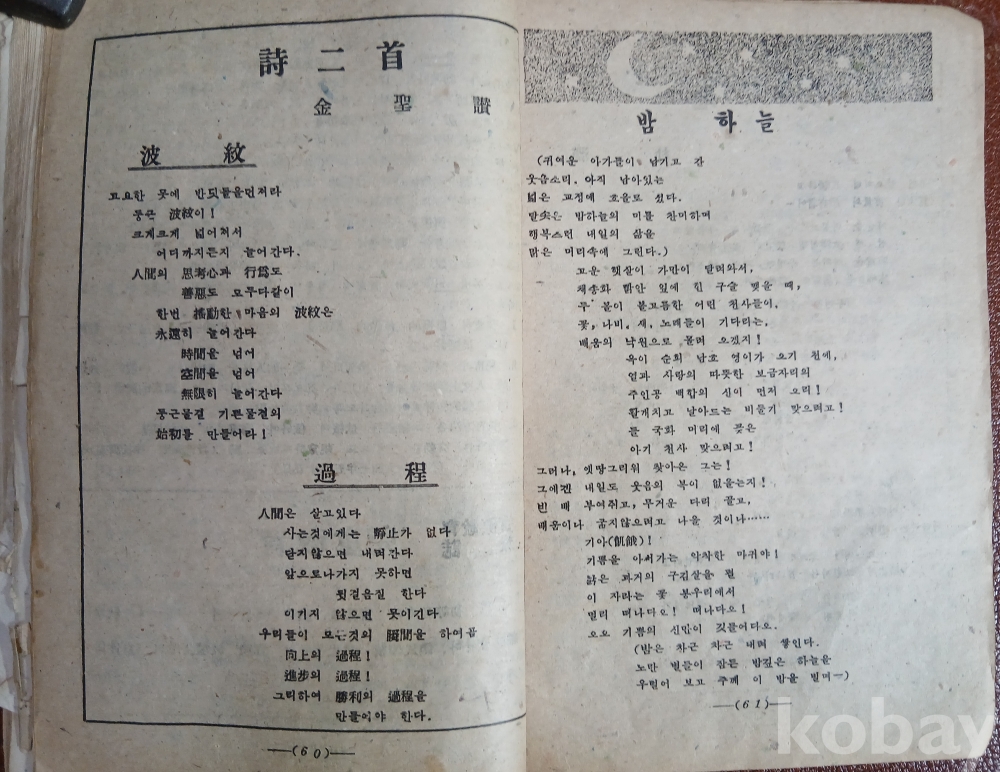 詩二首
金聖讚
波紋
고요한 못에 반듯돌을던져라
둥근 波紋이!
크게크게 넓어져서
어디까지든지 늘어간다.
人間의 思考心과 行爲도
善惡도 모두다같이
한번 搖動한 마음의 波紋은
永遠히 늘어간다
時間을 넘어
空間을 넘어
無限히 늘어간다
둥근물결 기쁜물결의
始初를 만들어라!
過程
人間은 살고있다
사는것에게는 靜止가 없다
닫지않으면 내려간다
앞으로나가지 못하면
뒷걸음질 한다
이기지 않으면 못이긴다
우리들이 모든것의 瞬間을 하여곰
向上의 過程!
進步의 過程!
그리하여 勝利의 過程을
만들어야 한다.
—(60)—
밤하늘
(귀여운 아가들이 남기고 간
웃음소리. 아직 남아있는
넓은 교정에 호을로 섰다.
말없은 밤하늘의 미를 찬미하며
행복스런 내일의 삶을
맑은 머리속에 그린다.)
고운 햇살이 가만이 달려와서,
채송화 밤안 잎에 힌 구슬 맺을 때,
두 볼이 불고름한 어린 천사들이,
꽃, 나비. 새, 노래들이 기다리는,
배움의 낙원으로 몰려 오겠지!
옥이 순희 남호 영이가 오기 전에,
열과 사랑의 따뜻한 보금자리의
주인공 백합의 신이 먼저 오리!
활개치고 날아드는 비둘기 맞으려고!
들 국화 머리에 꽂은
아기 천사 맞으려고!
그러나, 옛망그리워 찾아온 그는!
그에겐 내일도 웃음의 복이 없을는지!
빈 배 부여쥐고, 무거운 다리 끌고,
배움이나 굶지않으려고 나올 것이나……
기아(飢餓)!
기쁨을 아서가는 악착한 마귀야!
낡은 과거의 구김살을 펼
이 자라는 꽃 봉우리에서
멀리 떠나다오! 떠나다오!
오오 기쁨의 신만이 깃들어다오.
(밤은 차근 차근 내려 쌓인다.
노란 별들이 잠든 밤깊은 하늘을
우럴어 보고 주께 이 밤을 빌며—)
—(61)—
kobay